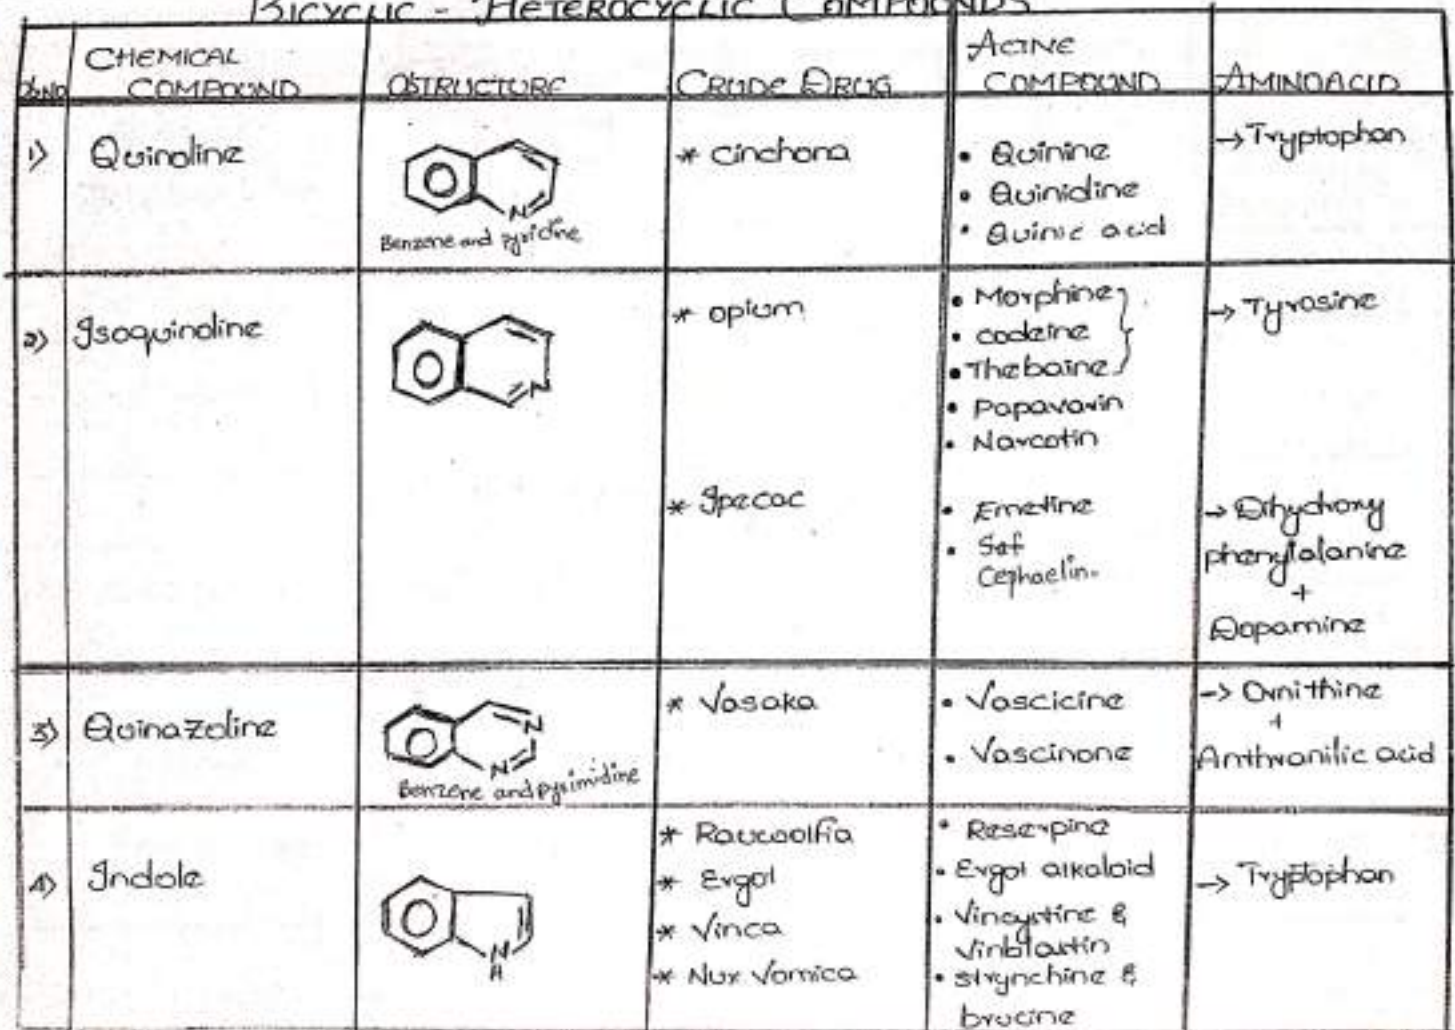 BICYCLIC - HETEROCYCLIC COMPOUNDS
S.NO
CHEMICAL COMPOUND
STRUCTURE
CRUDE DRUG
ACTIVE COMPOUND
AMINOACID
1)
Quinoline
N
Benzene and pyridine
* cinchona
• Quinine
• Quinidine
• Quinic acid
→ Tryptophan
2)
Isoquinoline
N
* opium
• Morphine
• codeine
• Thebaine
• Papavarin
• Narcotin
→ Tyrosine
* Ipecac
• Emetine
•
Cephaelin.
→ Dihydroxy
phenylalanine
+
Dopamine
3)
Quinazoline
N
N
Benzene and pyrimidine
* Vasaka
• Vascicine
• Vascinone
→ Ornithine
+
Anthranilic acid
4)
Indole
N
H
* Rauwolfia
* Ergot
* Vinca
* Nux Vomica
• Reserpine
• Ergot alkaloid
• Vincystine &
Vinblastin
• strynchine &
brucine
→ Tryptophan